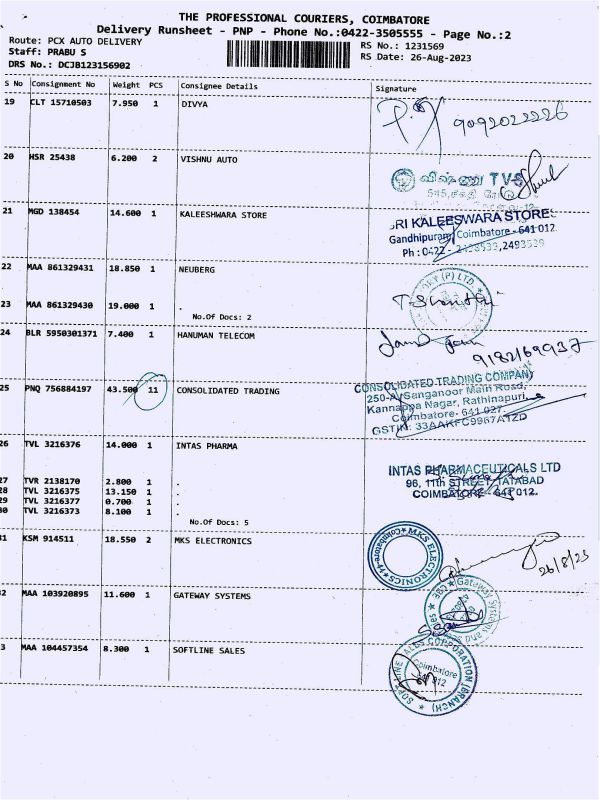 THE PROFESSIONAL COURIERS, COIMBATORE
Delivery Runsheet - PNP - Phone No.:0422-3505555 - Page No.:2
Route: PCX AUTO DELIVERY
RS No.: 1231569
Staff: PRABU S
RS Date: 26-Aug-2023
DRS No.: DCJB123156902
S No Consignment No Weight PCS Consignee Details Signature
19 CLT 15710503 7.950 1 DIVYA
9092022226
20 HSR 25438 6.200 2 VISHNU AUTO
விஷ்ணு TVS
21 MGD 138454 14.600 1 KALEESHWARA STORE
SRI KALEESWARA STORES
Gandhipuram, Coimbatore - 641 012.
Ph : 0422 -
22 MAA 861329431 18.850 1 NEUBERG
23 MAA 861329430 19.000 1 .
No.Of Docs: 2
24 BLR 5950301371 7.400 1 HANUMAN TELECOM
25 PNQ 756884197 43.500 11 CONSOLIDATED TRADING
CONSOLIDATED TRADING COMPANY
250-A, Sanganoor Main Road,
Kannappa Nagar, Rathinapuri,
Coimbatore- 641 027.
GSTIN: 33AAKFC9967A1ZD
26 TVL 3216376 14.000 1 INTAS PHARMA
INTAS PHARMACEUTICALS LTD
96, 11th STREET, TATABAD
COIMBATORE - 641 012.
27 TVR 2138170 2.800 1 .
28 TVL 3216375 13.150 1 .
29 TVL 3216377 0.700 1 .
30 TVL 3216373 8.100 1 .
No.Of Docs: 5
31 KSM 914511 18.550 2 MKS ELECTRONICS
MKS ELECTRONICS
Coimbatore
26/8/23
32 MAA 103920895 11.600 1 GATEWAY SYSTEMS
Gateway Systems and
3 MAA 104457354 8.300 1 SOFTLINE SALES
SOFTLINE SALES CORPORATION (BRANCH)
Coimbatore